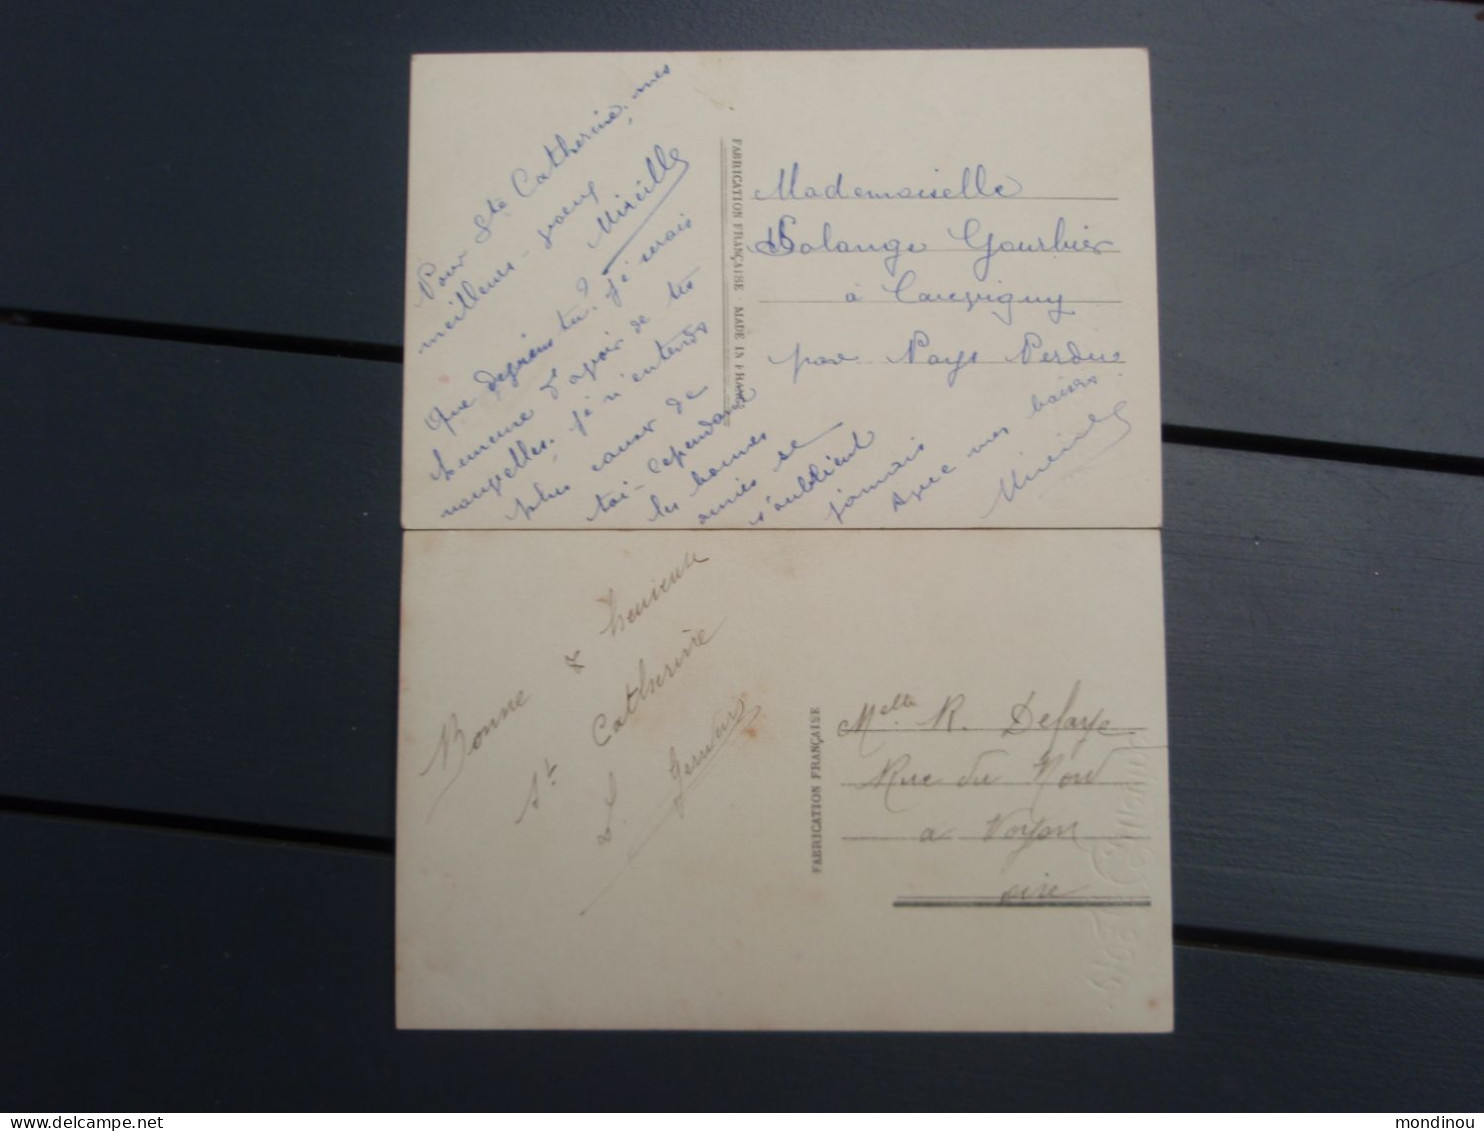 Pour Ste Catherine, mes
meilleurs voeux
Mireille
Que deviens tu? je serais
heureuse d'avoir de tes
nouvelles, je n'entends
plus causer de
toi - Cependant
les bonnes
amies se
s'oublient
jamais
Avec mes baisers
Mireille
FABRICATION FRANÇAISE - MADE IN FRANCE
Mademoiselle
Solange Gourbier
à
par Pays Perdu
Bonne & heureuse
St Catherine
FABRICATION FRANÇAISE
Melle R. Defaye
Rue du Nord
a Noyon
oise
www.delcampe.net
mondinou